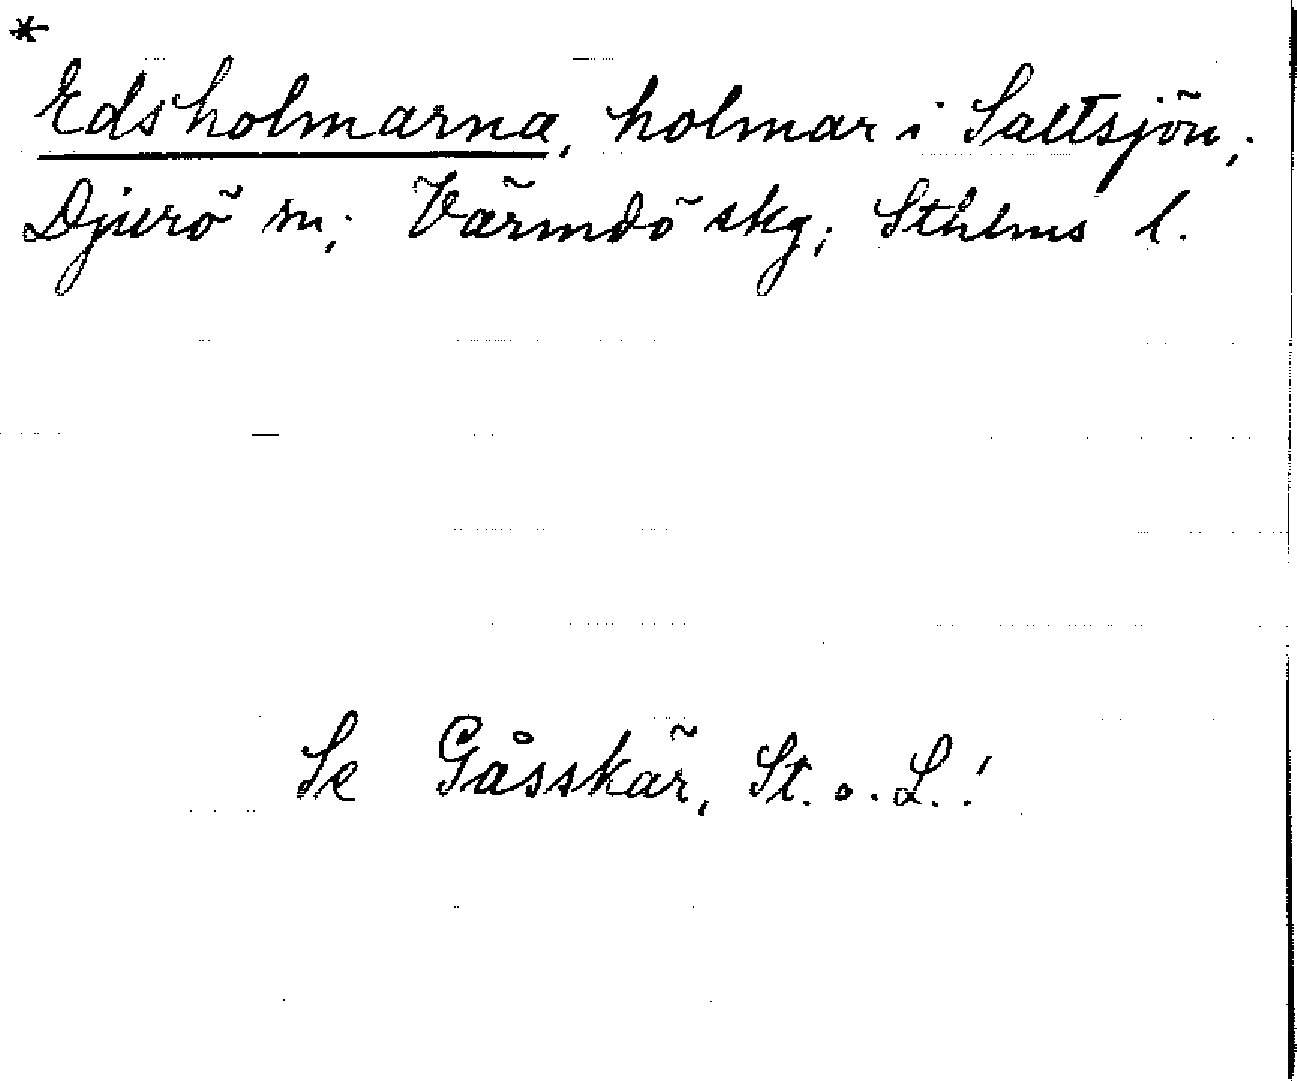 *
Edsholmarna, holmar i Saltsjön;
Djurö sn; Värmdö skg; Sthlms l.
Se Gåsskär, St. o. L.!